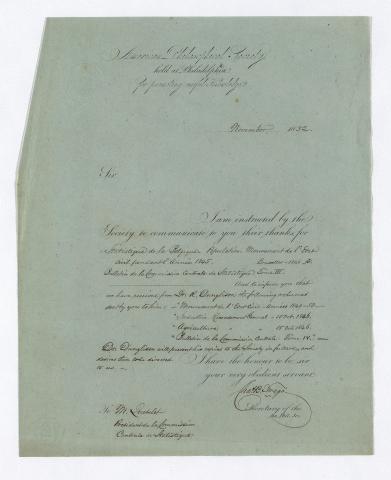 American Philosophical Society
held at Philadelphia
for promoting useful Knowledge
November 1852.
Sir
I am instructed by the
Society to communicate to you their thanks for
Statistique de la Belgique Population Mouvement de l'Etat
civil pendant l'Année 1845. Bruxelles 1846
Bulletin de la Commission Centrale de Statistique Tome III.
And to inform you that
we have received from Dr. R. Dunglison the following volumes
sent by you to him:
Mouvement de l'Etat Civil
Industrie Recensement General 15 Oct. 1846.
Agriculture " 15 Oct. 1846.
Bulletin de la Commission Centrale Tome IV.
Dr. Dunglison will present his copies to the Society in future, and
desires them to be directed
to us.
I have the honour to be sir
your very obedient servant
Secretary of the
To M. Quetelet
President de la Commission
Centrale de Statistique